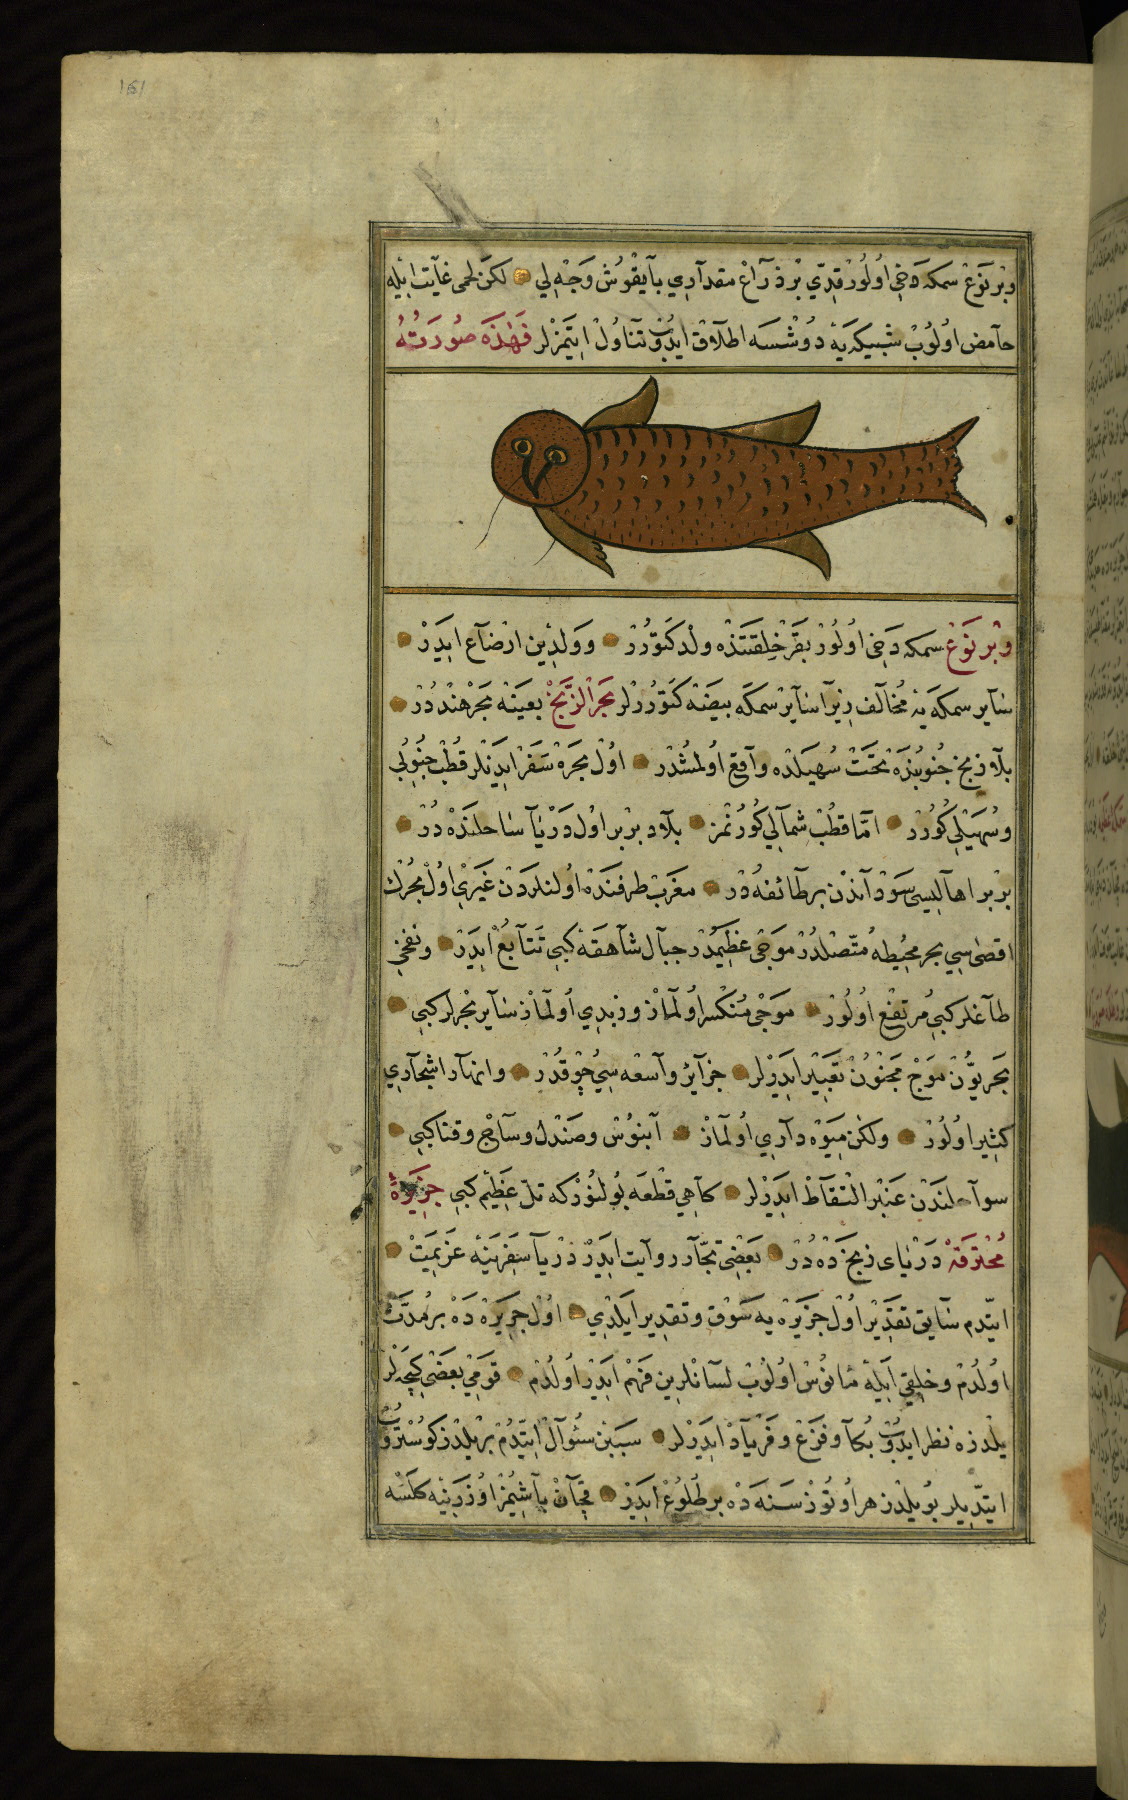 151
وبر نوع سمكه دخى اولور قدّي بر ذراع مقداري بايقوش وجهلي لكن لحمى غايت ايله
حامض اولوب شبيكه يه دوشسه اطلاق ايدوب تناول ايتمزلر فهذه صورته
وبر نوع سمكه دخى اولور بقر خلقتنده ولد كتورر وولدين ارضاع ايدر
ساير سمكه يه مخالف زيرا ساير سمكه بيضه كتوررلر بحر الزنج بعينه بحر هنددر
بلاد زنج جنوبنده تحت سهيلده واقع اولمشدر اول بحره سفر ايدنلر قطب جنوبي
وسهيلي كورر امّا قطب شمالي كورنمز بلاد بربر اول دريا ساحلنده در
بربر اهاليسى سوداندن بر طائفه در مغرب طرفنده اولنلردن غيري اول بحرك
اقصى سي بحر محيطه متّصلدر موجى عظيمدر جبال شاهقه كبي تتابع ايدر ونفخى
طاغلر كبي مرتفع اولور موجى منكسر اولماز وزبدي اولماز ساير بحرلر كبي
بحريون موج مجنون تعبير ايدرلر جزاير واسعه سي چوقدر وانهار اشجاري
كثير اولور ولكن ميوه داري اولماز آبنوس وصندل وساج وقنا كبي
سواحلندن عنبر التقاط ايدرلر كاهي قطعه بولنور كه تلّ عظيم كبي جزيرة
محترقه درياى زنجده در بعضى تجّار روايت ايدر دريا سفرينه عزيمت
ايتدم سايق تقدير اول جزيره يه سوق وتقدير ايلدي اول جزيره ده بر مدّت
اولدم وخلقي ايله مانوس اولوب لسانلرين فهم ايدر اولدم قومى بعضى كيجه لر
يلدزه نظر ايدوب بكا وفزع وفرياد ايدرلر سببن سئوال ايتدم بر يلدز كوستروب
ايتديلر بو يلدز هر اوتوز سنه ده بر طلوع ايدر قچان باشيمز اوزرينه كلسه